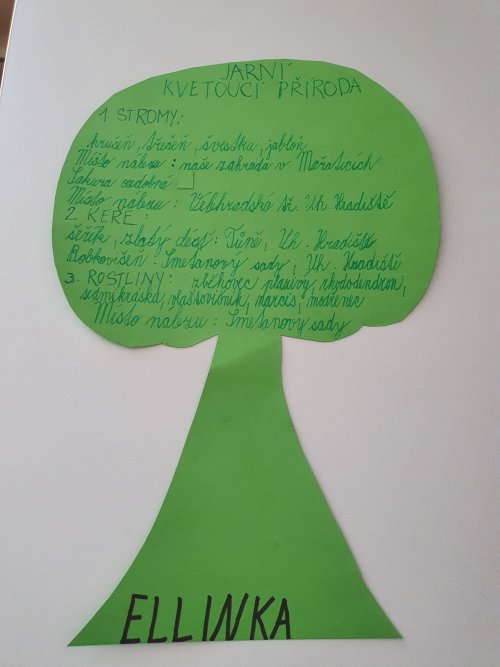 JARNÍ
KVETOUCÍ PŘÍRODA
1 STROMY:
hrušeň, třešeň, švestka, jabloň
Místo nálezu: naše zahrada v Mařaticích
Sakura ozdobná
Místo nálezu: Velehradská tř. Uh. Hradiště
2. KEŘE:
šeřík, zlatý déšť: Tůně, Uh. Hradiště
Bobkovišeň: Smetanovy sady, Uh. Hradiště
3. ROSTLINY: zběhovec plazivý, rhododendron,
sedmikráska, vlaštovičník, narcis, modřenec
Místo nálezu: Smetanovy sady
ELLINKA